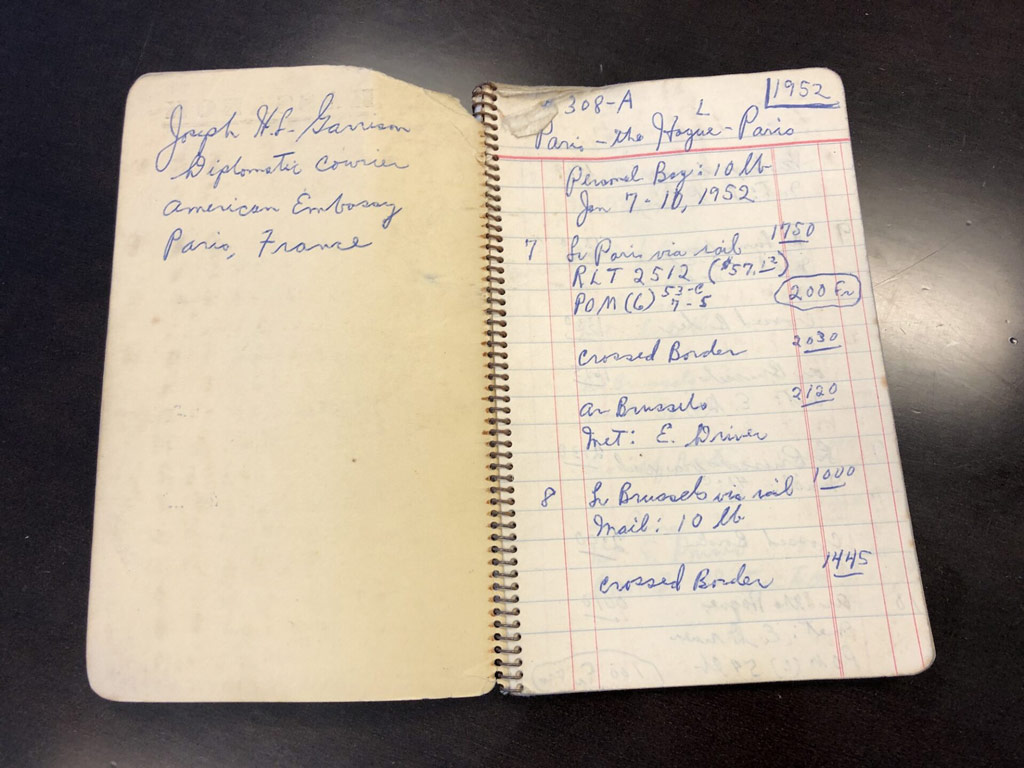 Joseph H.L. Garrison
Diplomatic Courier
American Embassy
Paris, France
1952
308-A L
Paris - the Hague - Paris
Personal Bag: 10 lb
Jan 7-10, 1952
7 Lv Paris via rail 1750
RLT 2512 ($57.13)
POM (6) 53-C 7-5 200 Fr
Crossed Border 2030
Ar Brussels 2120
Met: E. Driver
8 Lv Brussels via rail 1000
Mail: 10 lb
Crossed Border 1445